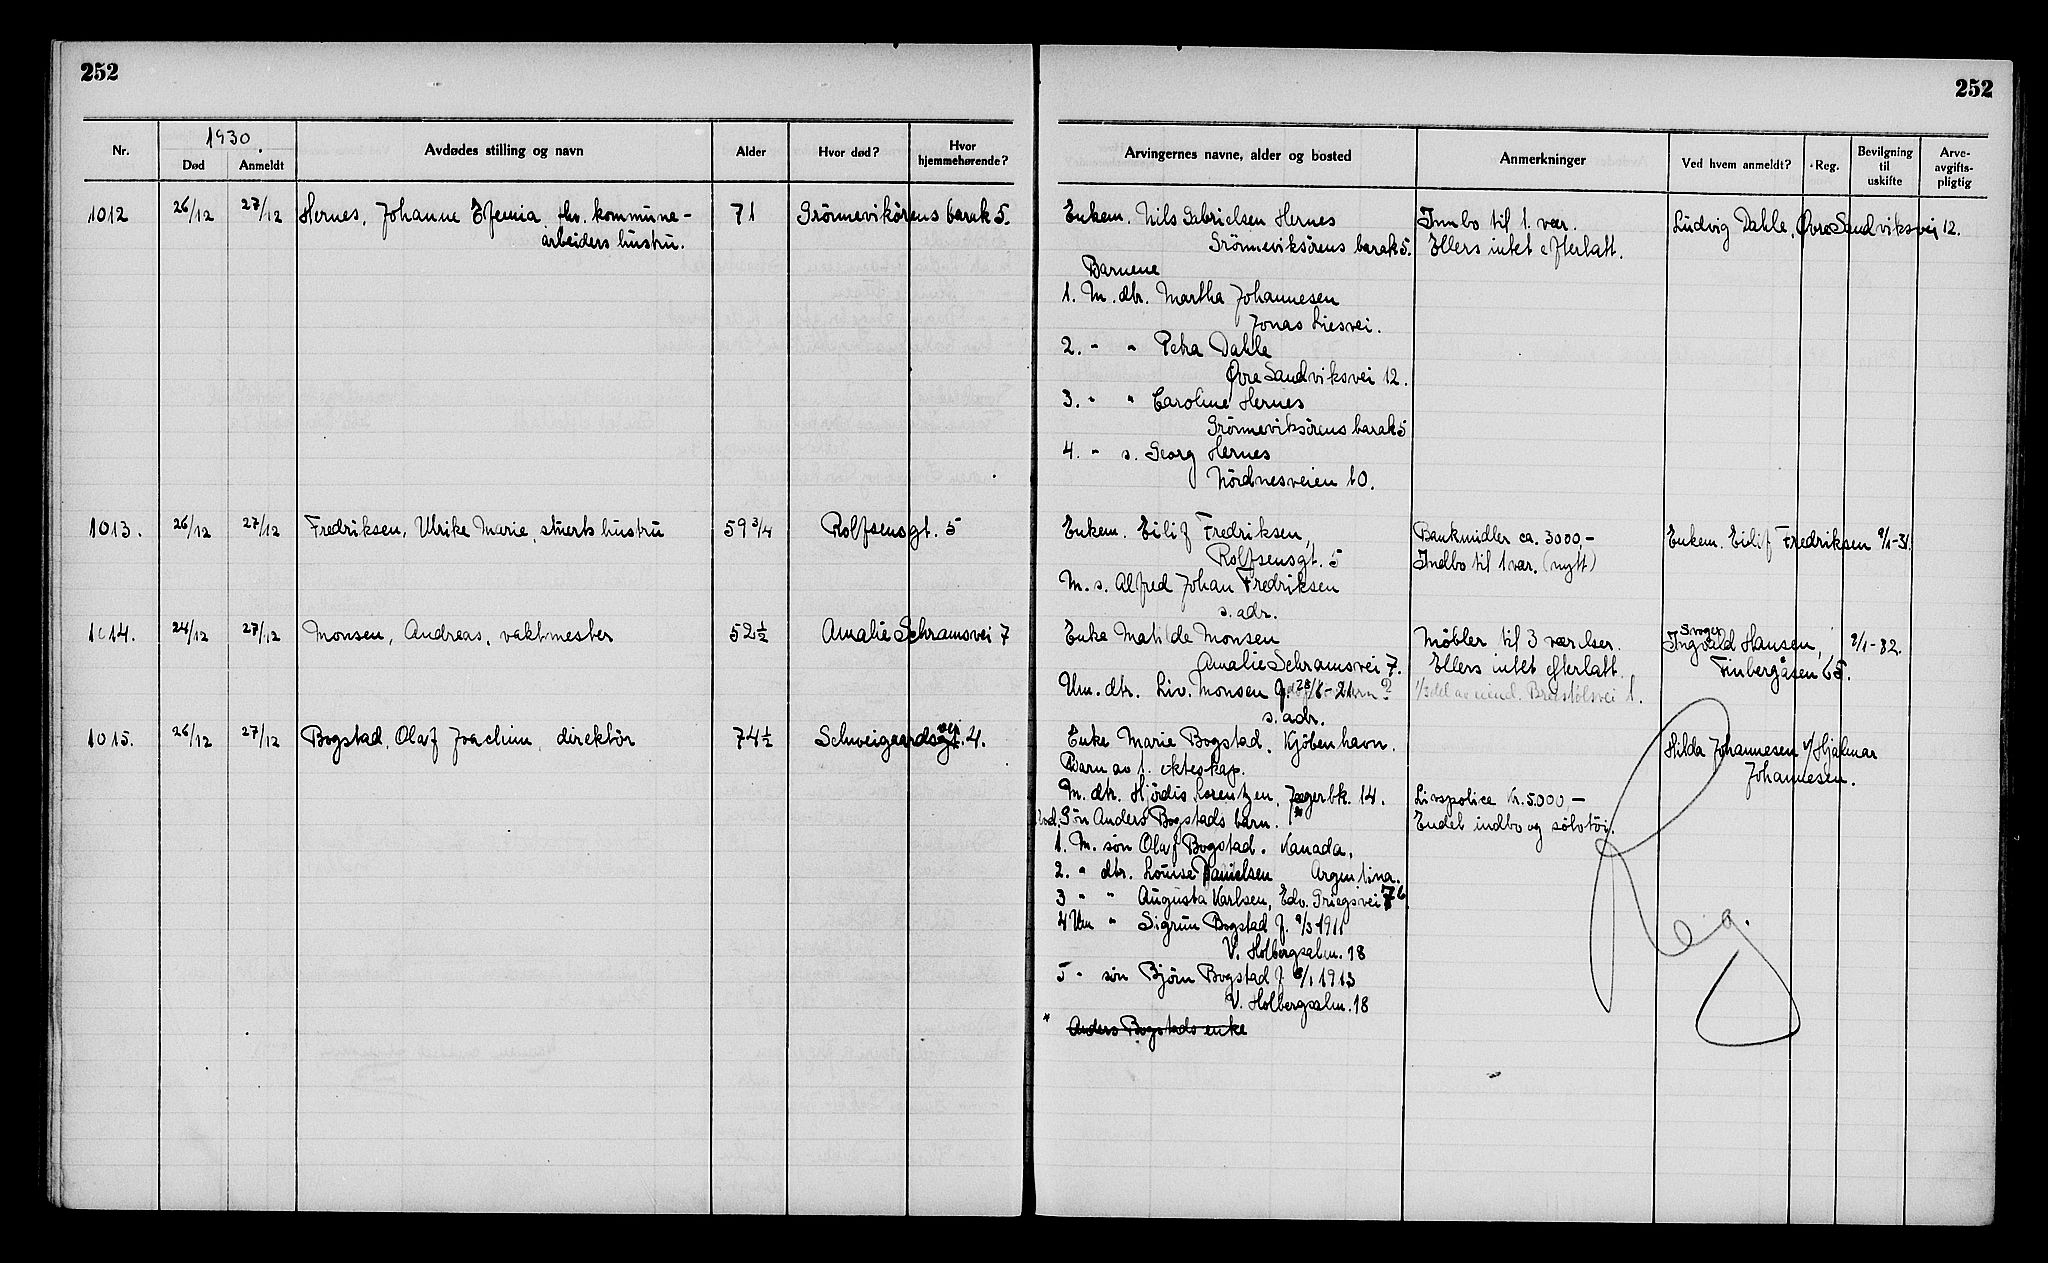 252
252
Nr.
1930.
Død
Anmeldt
Avdødes stilling og navn
Alder
Hvor død?
Hvor
hjemmehørende?
Arvingernes navne, alder og bosted
Anmerkninger
Ved hvem anmeldt?
Reg.
Bevilgning
til
uskifte
Arve-
avgifts-
pligtig
1012 26/12 27/12 Hernes, Johanne Efemia, fhv. kommune-
arbeiders hustru.
71 Grönnevikörens barak 5.
Enkem. Nils Gabrielsen Hernes
Grönneviksörens barak 5.
Barnene
1. M. dtr. Martha Johannesen
Jonas Liesvei.
2. - " Petra Dahle
Øvre Sandviksvei 12.
3. - " Caroline Hernes
Grönneviksörens barak 5
4. - s. Georg Hernes
Nördnesveien 10.
Innbo til 1. vær.
Ellers intet efterlatt.
Ludvig Dahle, Øvre Sandviksvei 12.
1013. 26/12 27/12 Fredriksen, Ulrike Marie, stuerts hustru 59 3/4 Rolfsensgt. 5
Enkem. Eilif Fredriksen,
Rolfsensgt. 5
M. s. Alfred Johan Fredriksen
s. adr.
Bankmidler ca. 3000,-
Indbo til 1 vær. (nytt)
Enkem. Eilif Fredriksen 9/1-31.
1014. 24/12 27/12 Monsen, Andreas, vaktmester 52 1/2 Amalie Schramsvei 7
Enke Matilde Monsen
Amalie Schramsvei 7.
Um. dtr. Liv. Monsen f. 28/8-21
s. adr.
Møbler til 3 værelser.
Ellers intet efterlatt.
1/3 del av eiend. Breistølsvei 1.
Svoger
Ingvald Hansen,
Finbergåsen 65.
2/1-32.
1015. 26/12 27/12 Bogstad, Olaf Joachim, direktör 74 1/2 Schweigaardsvei 4.
Enke Marie Bogstad, Kjöbenhavn.
Barn av 1. ekteskap.
M. dtr. Hjördis Lorentzen, Jægerbk. 14.
Sön Anders Bogstads barn.
1. M. søn Olaf Bogstad. Kanada,
2. " dtr. Louise Danielsen Argentina.
3 - " Augusta Karlsen, Edv. Griegsvei 7b
4 Um " Sigrun Bogstad f. 9/3 1911
V. Holbergsalm. 18
5 - søn Bjørn Bogstad f 8/1 1913
V. Holbergsalm. 18
* Anders Bogstads enke
Livspolice kr. 5.000 -
Endel indbo og sölvtöi.
Hilda Johannesen v/ Hjalmar
Johannesen.
Reg.